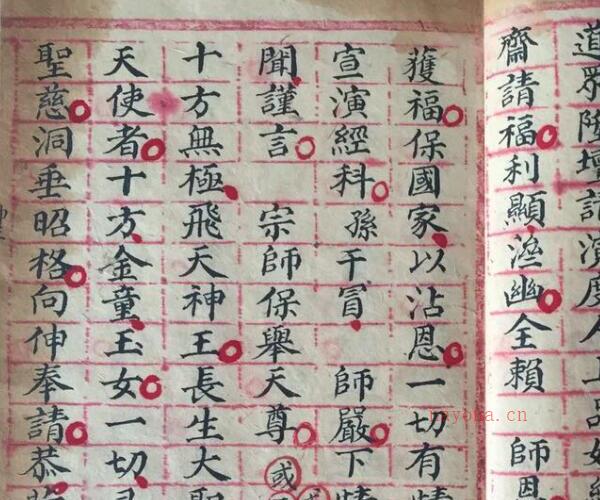 道眾陞壇
齋請福利顯
幽全賴 師恩
獲福保國家以沾恩一切有情
宣演經科 孫干冒 師嚴下情
聞謹言 宗師保舉天尊
十方無極飛天神王長生大聖
天使者十方金童玉女一切
聖慈洞垂昭格向伸奉請恭